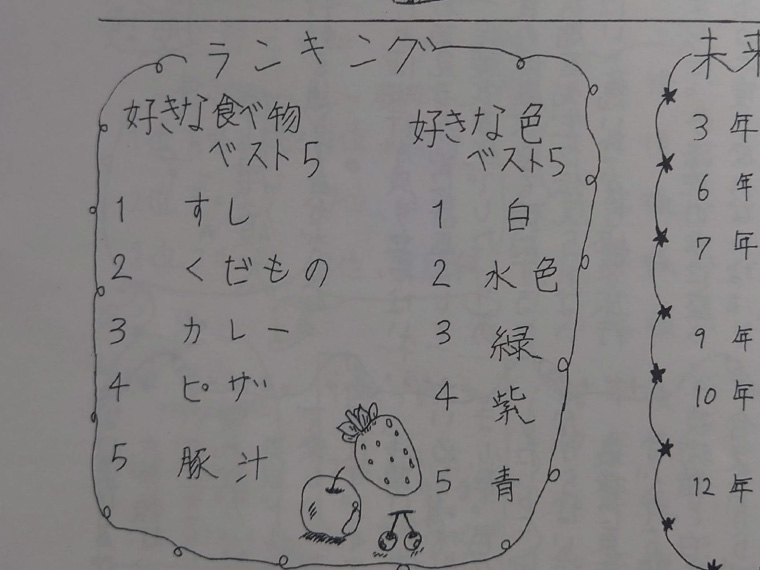 ランキング
好きな食べ物
ベスト5
1 すし
2 くだもの
3 カレー
4 ピザ
5 豚汁
好きな色
ベスト5
1 白
2 水色
3 緑
4 紫
5 青
未来
3年
6年
7年
9年
10年
12年